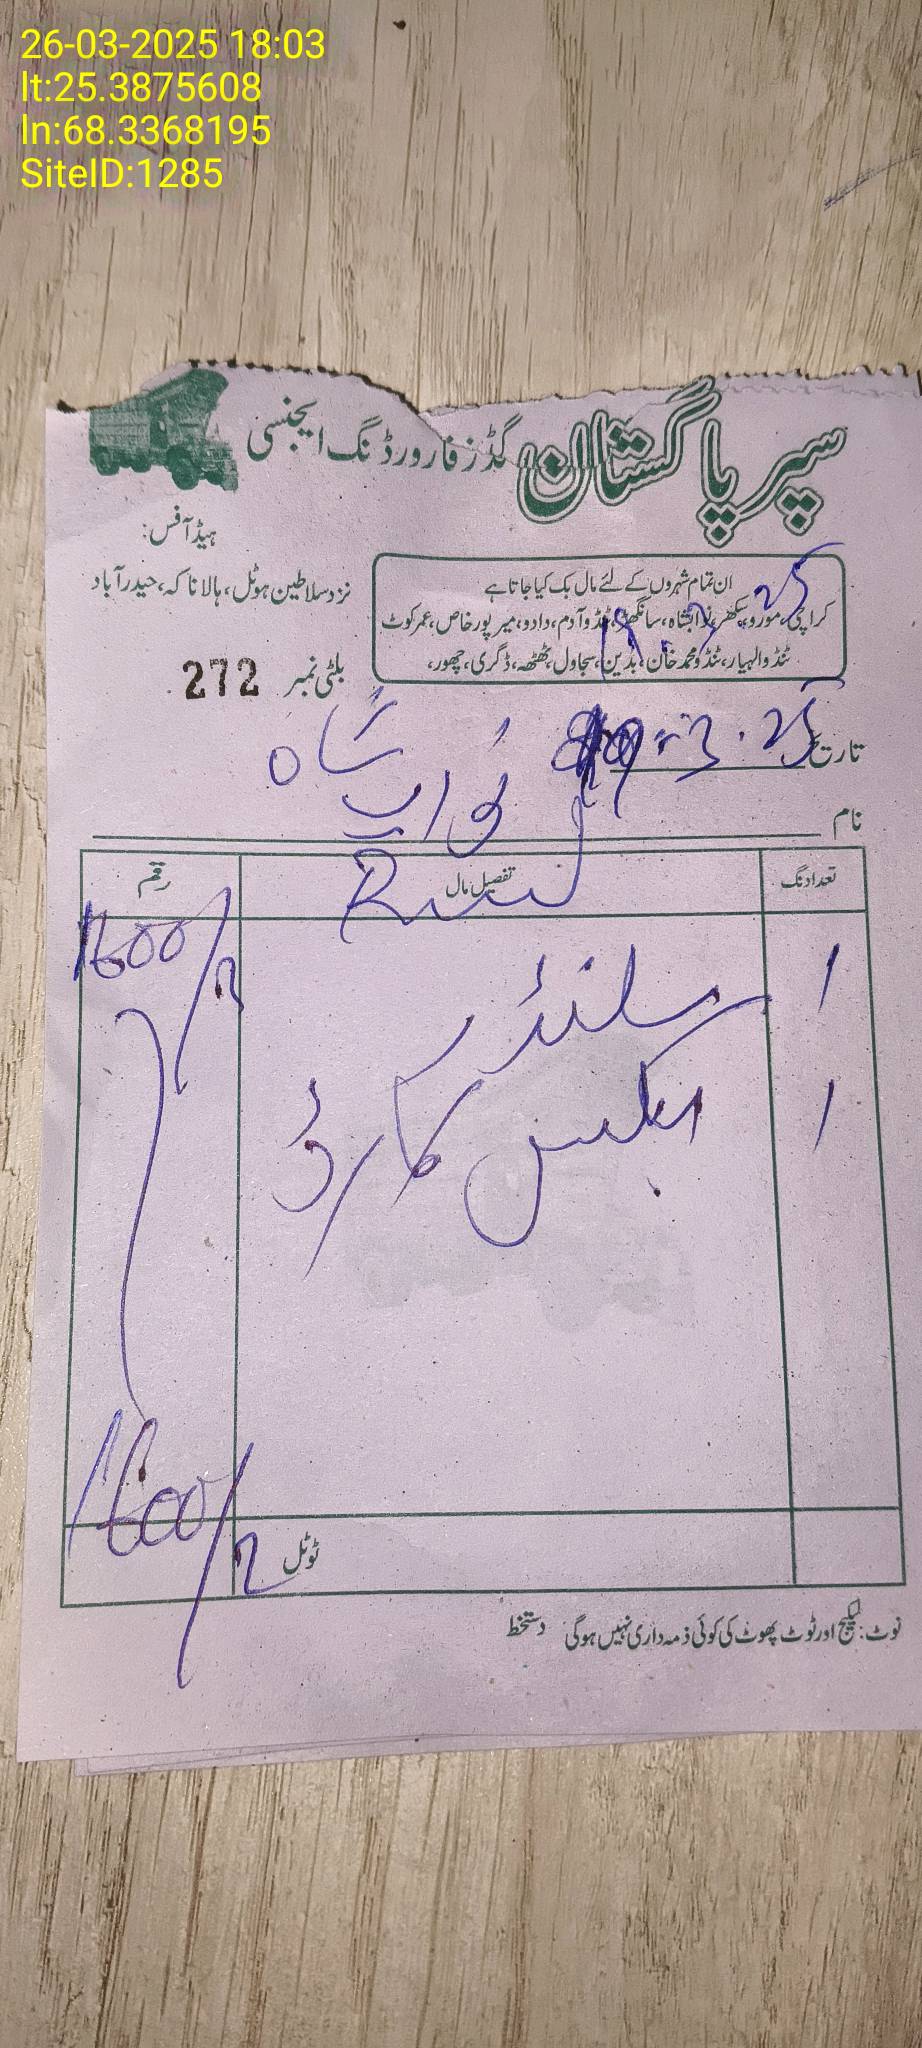 26-03-2025 18:03
lt:25.3875608
ln:68.3368195
SiteID:1285
سپر پاکستان گڈز فارورڈنگ ایجنسی
ہیڈ آفس:
نزد سلاطین ہوٹل، ہالا ناکہ، حیدرآباد
ان تمام شہروں کے لئے مال بک کیا جاتا ہے
کراچی، مورو، سکھر، نوابشاہ، سانگھڑ، ٹنڈوآدم، دادو، میرپورخاص، عمرکوٹ
ٹنڈوالہیار، ٹنڈومحمدخان، بدین، سجاول، ٹھٹھہ، ڈگری، جھور،
بلٹی نمبر 272
تاریخ 19-3-25
نواب شاہ
نام
تعداد نگ تفصیل مال رقم
1 1600/
1 کارڈ
ٹوٹل 1600/
نوٹ: لیکیج اور ٹوٹ پھوٹ کی کوئی ذمہ داری نہیں ہوگی دستخط